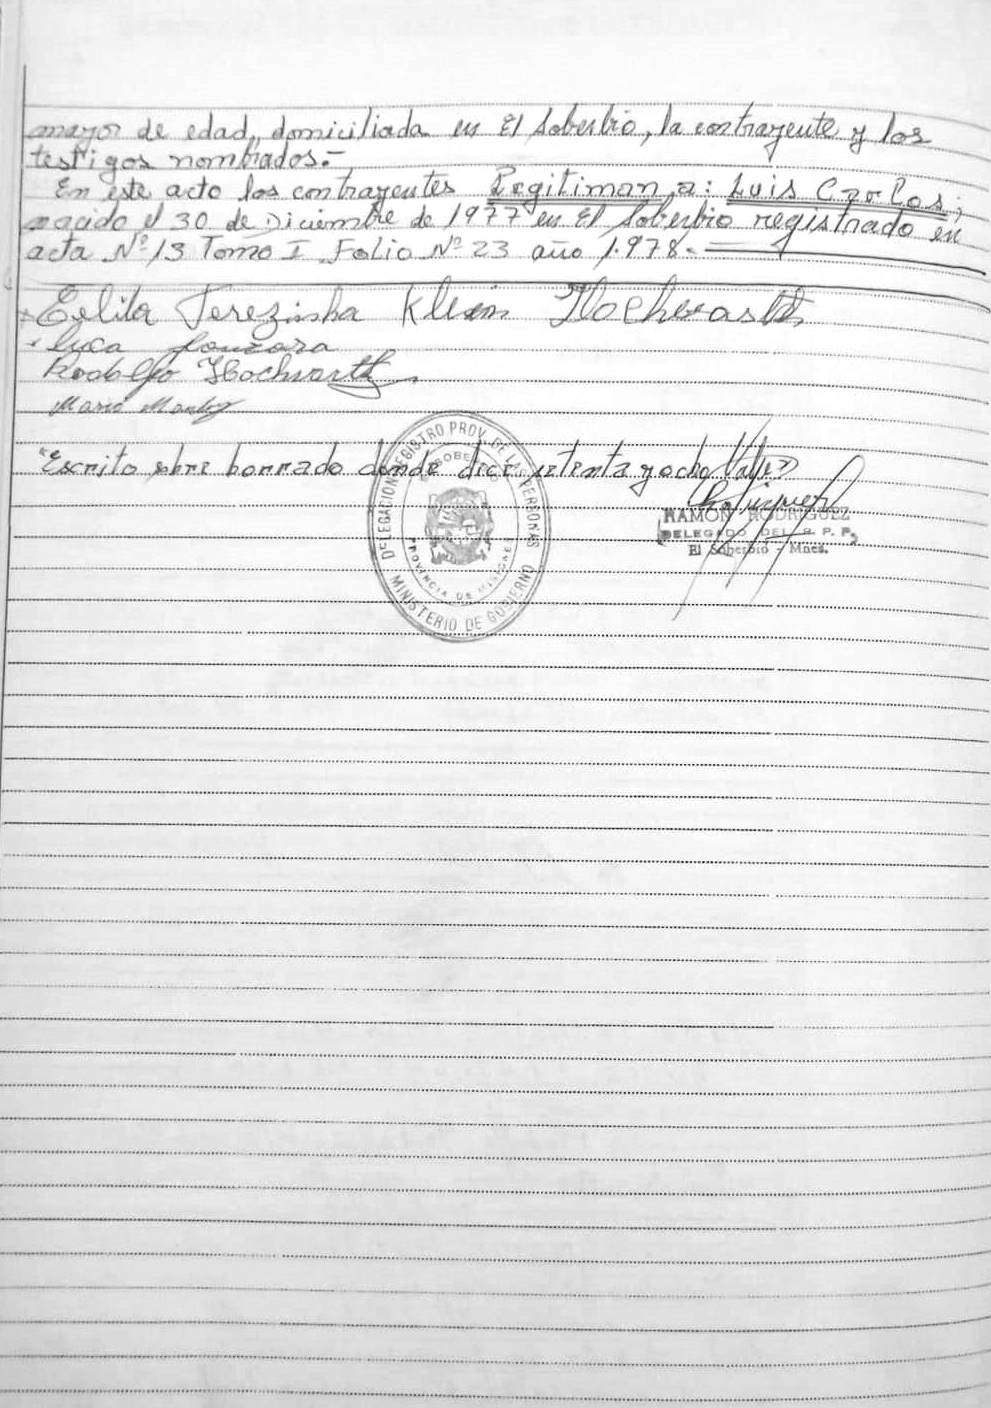 mayor de edad, domiciliada en El Soberbio, la contrayente y los
testigos nombrados.-
En este acto los contrayentes Legitiman a: Luis Carlos,
nacido el 30 de Diciembre de 1977 en El Soberbio registrado en
acta Nº 13 Tomo I Folio Nº 23 año 1.978.-
Terezinha Klein Hochwarth
Rodolfo Hochwarth
Mario
"Escrito sobre borrado donde dice: setenta y ocho Vale"
DELEGACION REGISTRO PROV. DE LAS PERSONAS
EL SOBERBIO
PROVINCIA DE MISIONES
MINISTERIO DE GOBIERNO
RAMON RODRIGUEZ
DELEGADO DEL R. P. P.
El Soberbio - Mnes.